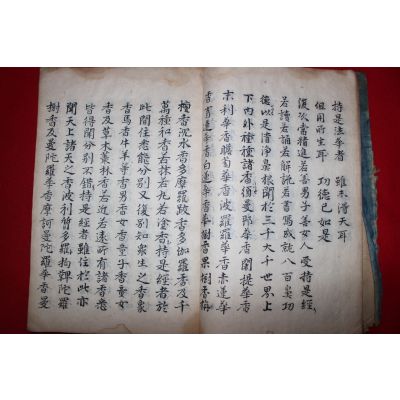 持是法華者 雖未得天耳
但用所生耳 功德已如是
復次常精進若善男子善女人受持是經
若讀若誦若解說若書寫成就八百鼻功
德以是清淨鼻根聞於三千大千世界上
下內外種種諸香須曼那華香闍提華香
末利華香薝蔔華香波羅羅華香赤蓮華
香青蓮華香白蓮華香華樹香果樹香栴
檀香沈水香多摩羅跋香多伽羅香及千
萬種和香若抹若丸若塗香持是經者於
此間住悉能分別又復別知衆生之香象
香馬香牛羊等香男香女香童子香童女
香及草木叢林香若近若遠所有諸香悉
皆得聞分別不錯持是經者雖住於此亦
聞天上諸天之香波利質多羅拘鞞陀羅
樹香及曼陀羅華香摩訶曼陀羅華香曼